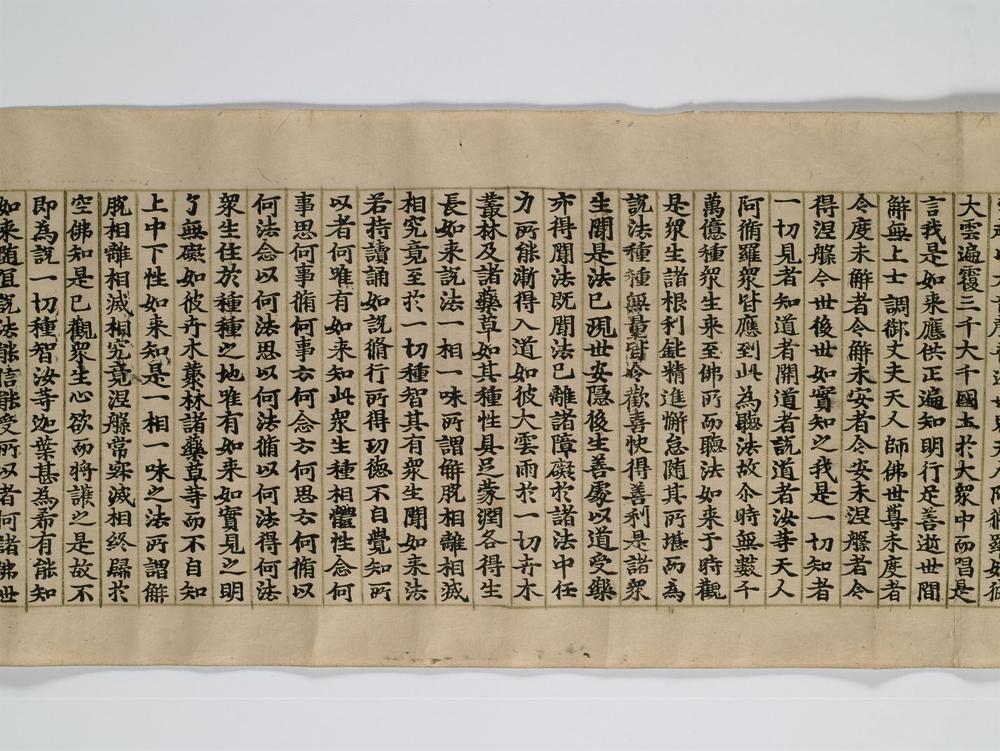 天人阿脩羅如彼
大雲遍覆三千大千國土於大衆中而唱是
言我是如来應供正遍知明行足善逝世間
解無上士調御丈夫天人師佛世尊未度者
令度未解者令解未安者令安未涅槃者令
得涅槃今世後世如實知之我是一切知者
一切見者知道者開道者說道者汝等天人
阿脩羅衆皆應到此為聽法故尒時無數千
萬億種衆生来至佛所而聽法如来于時觀
是衆生諸根利鈍精進懈怠隨其所堪而為
說法種種無量皆令歡喜快得善利是諸衆
生聞是法已現世安隱後生善處以道受樂
亦得聞法既聞法已離諸障礙於諸法中任
力所能漸得入道如彼大雲雨於一切卉木
叢林及諸藥草如其種性具足蒙潤各得生
長如来說法一相一味所謂解脫相離相滅
相究竟至於一切種智其有衆生聞如来法
若持讀誦如說脩行所得功德不自覺知所
以者何唯有如来知此衆生種相體性念何
事思何事脩何事云何念云何思云何脩以
何法念以何法思以何法脩以何法得何法
衆生住於種種之地唯有如来如實見之明
了無礙如彼卉木叢林諸藥草等而不自知
上中下性如来知是一相一味之法所謂解
脫相離相滅相究竟涅槃常寂滅相終歸於
空佛知是已觀衆生心欲而將護之是故不
即為說一切種智汝等迦葉甚為希有能知
如来隨宜說法能信能受所以者何諸佛世